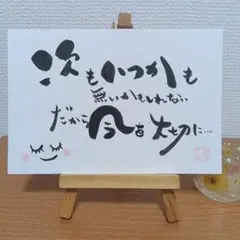 次もいつかも
無いかもしれない
だから今を大切に…